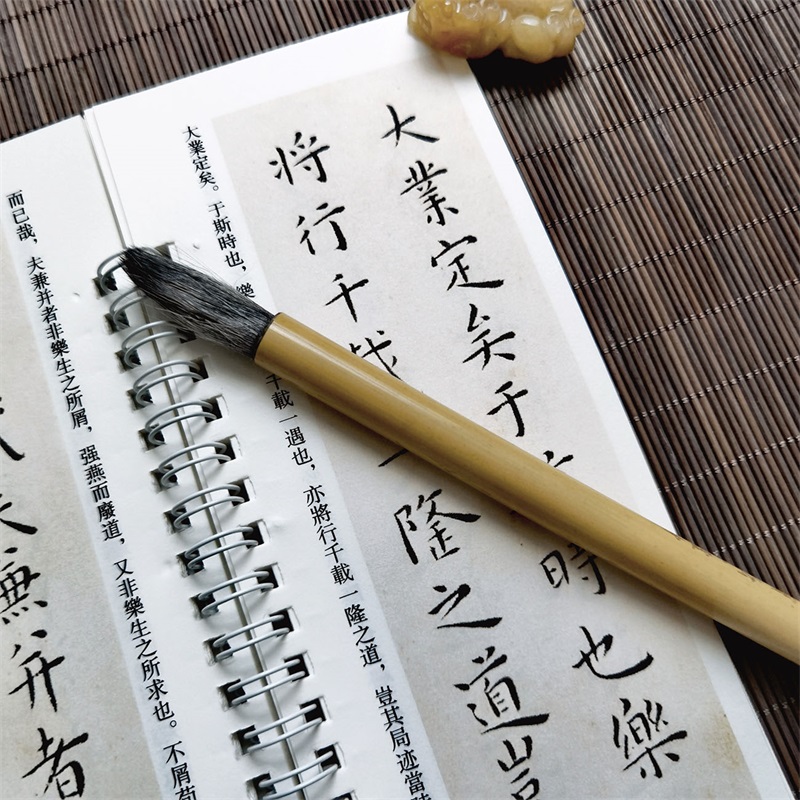 大業定矣于時也樂
將行千載一隆之道豈
大業定矣。于斯時也，樂千載一遇也，亦將行千載一隆之道，豈其局迹當
而已哉，夫兼并者非樂生之所屑，强燕而廢道，又非樂生之所求也。不屑苟
夫兼并者